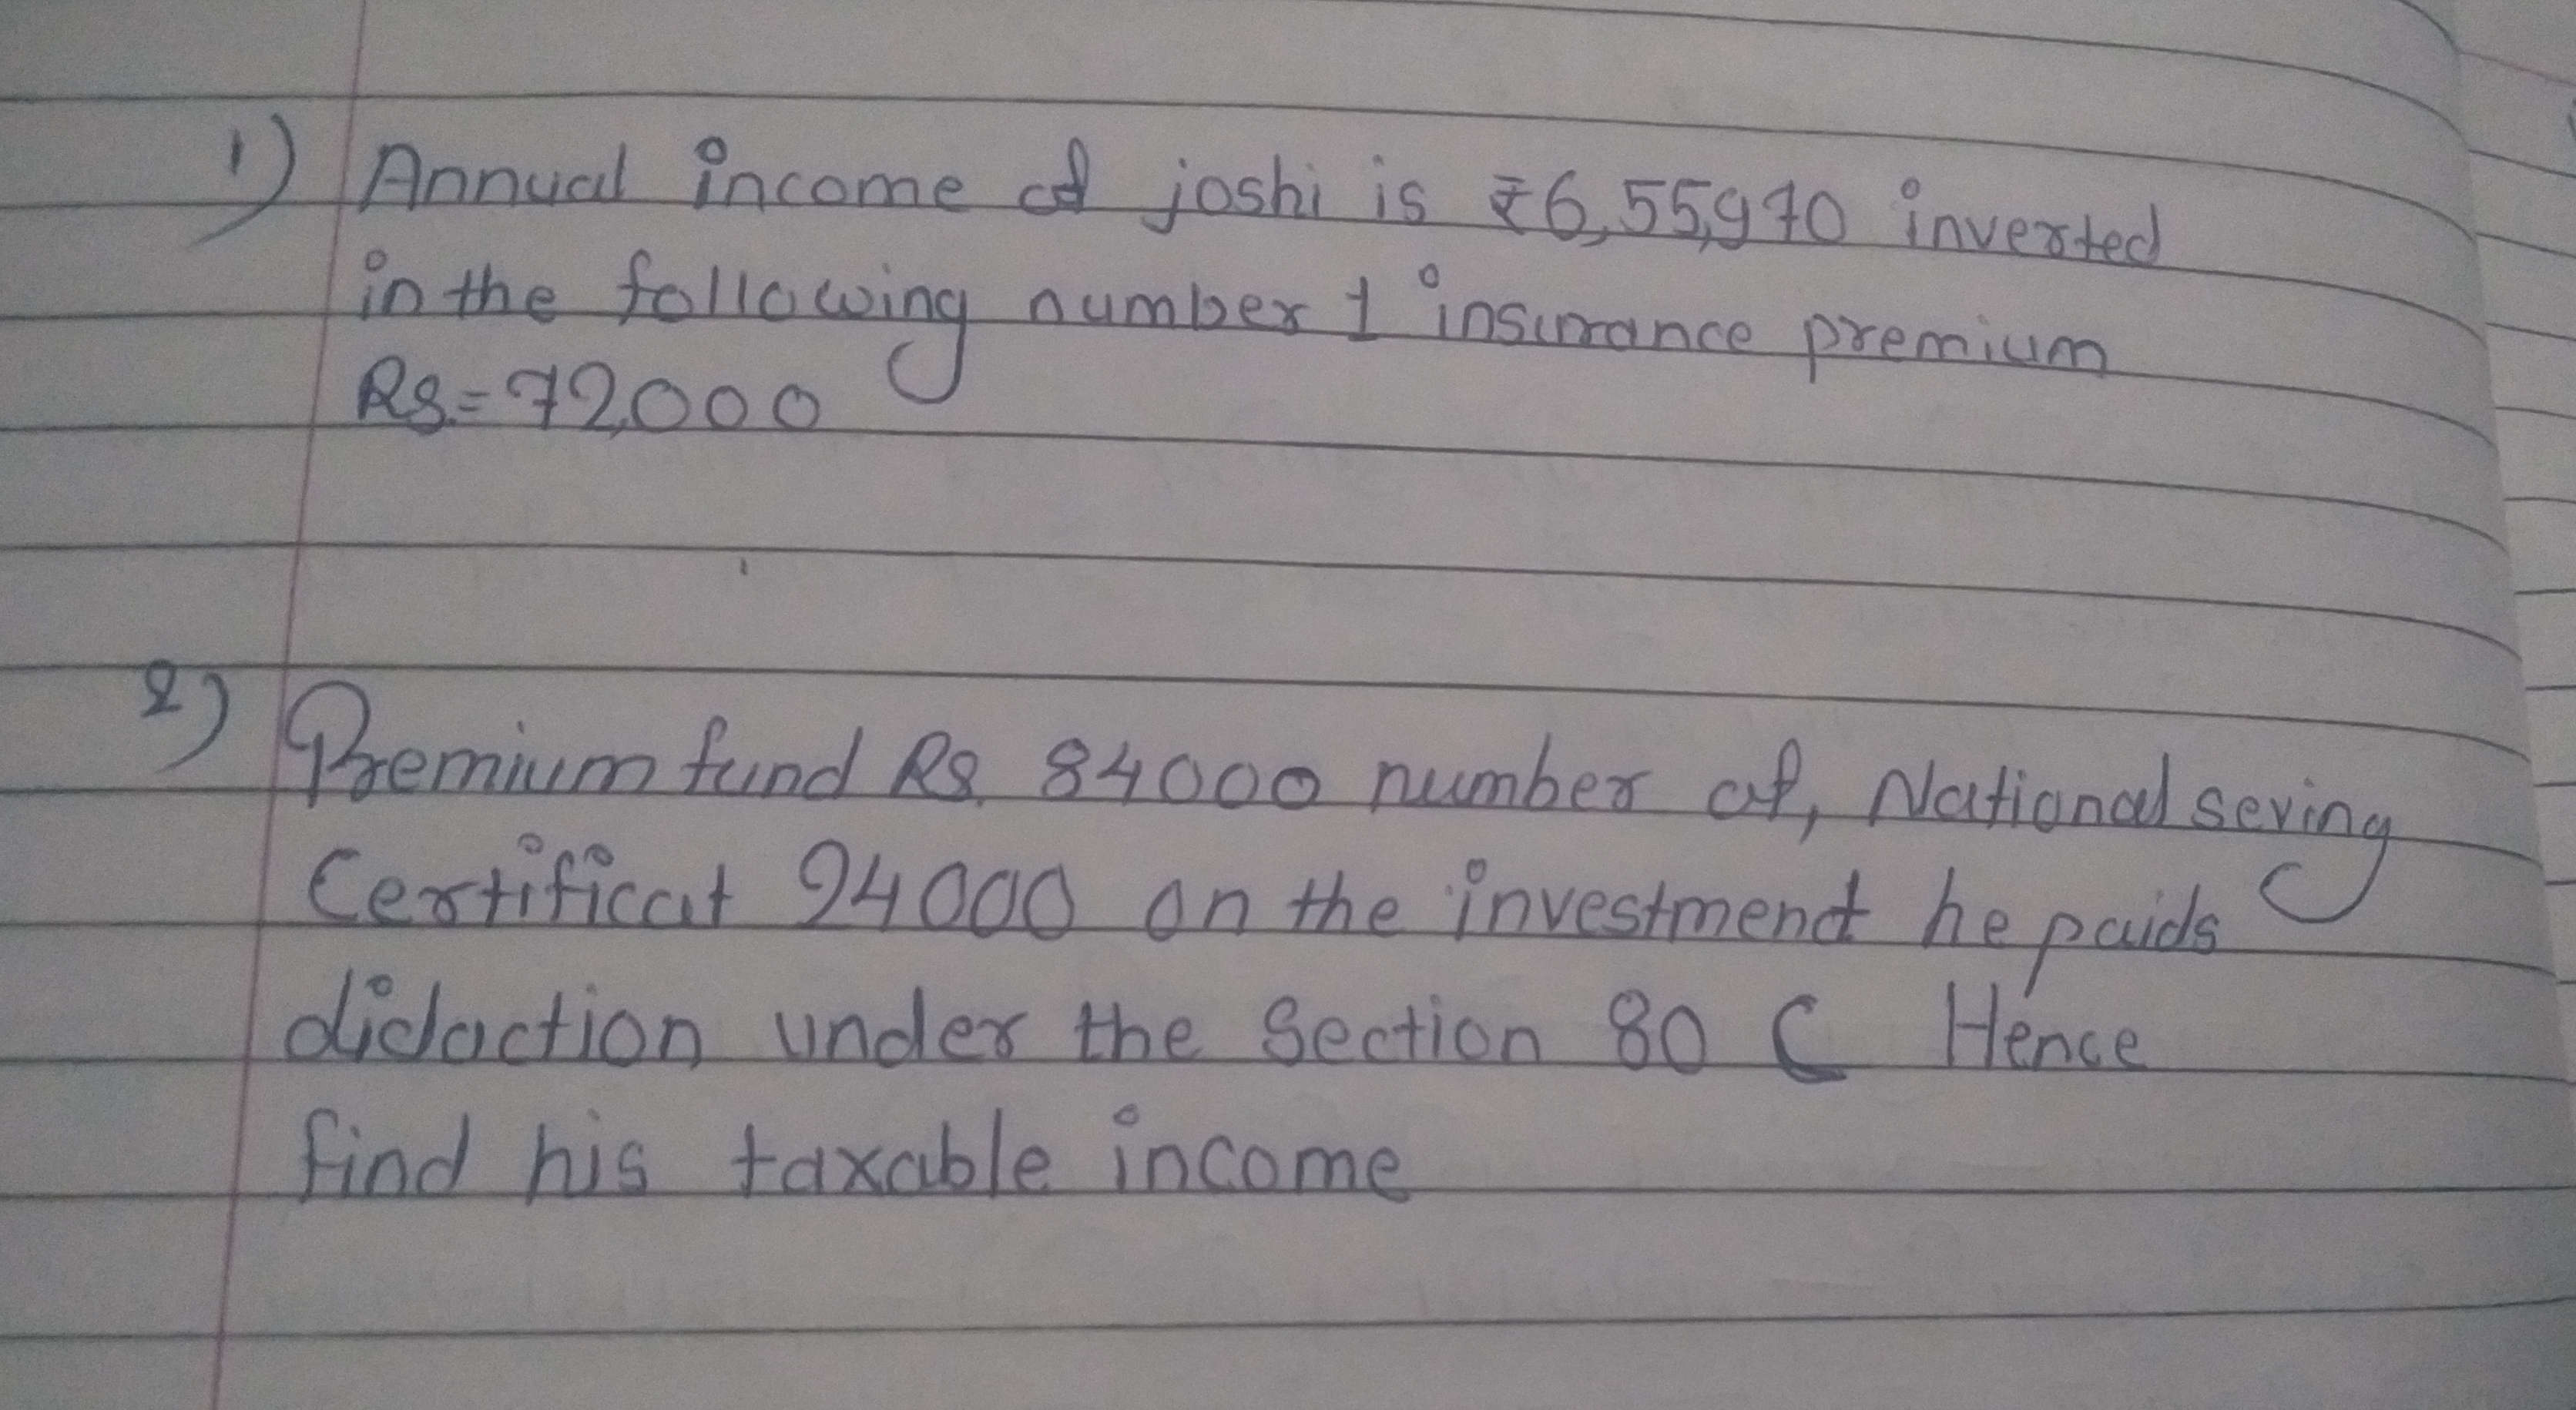 1) Annual income of joshi is ₹6,55,970 inverted
in the following number 1 insurance premium
Rs.=72,000
2) Premium fund Rs. 84000 number of, National seving
Certificat 24000 on the investment he paids
didaction under the Section 80 C Hence
find his taxable income